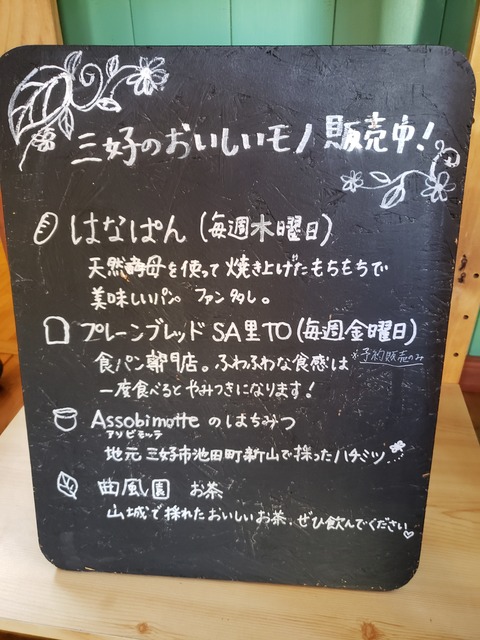 三好のおいしいモノ 販売中!
はなぱん (毎週木曜日)
天然酵母を使って焼き上げたもちもちで
美味しいパン ファン多し。
プレーンブレッド SA里TO (毎週金曜日)
※予約販売のみ
食パン専門店。ふわふわな食感は
一度食べるとやみつきになります!
Assobimotte のはちみつ
アソビモッテ
地元 三好市池田町新山で採ったハチミツ
曲風園 お茶
山城で採れたおいしいお茶、ぜひ飲んでください♡